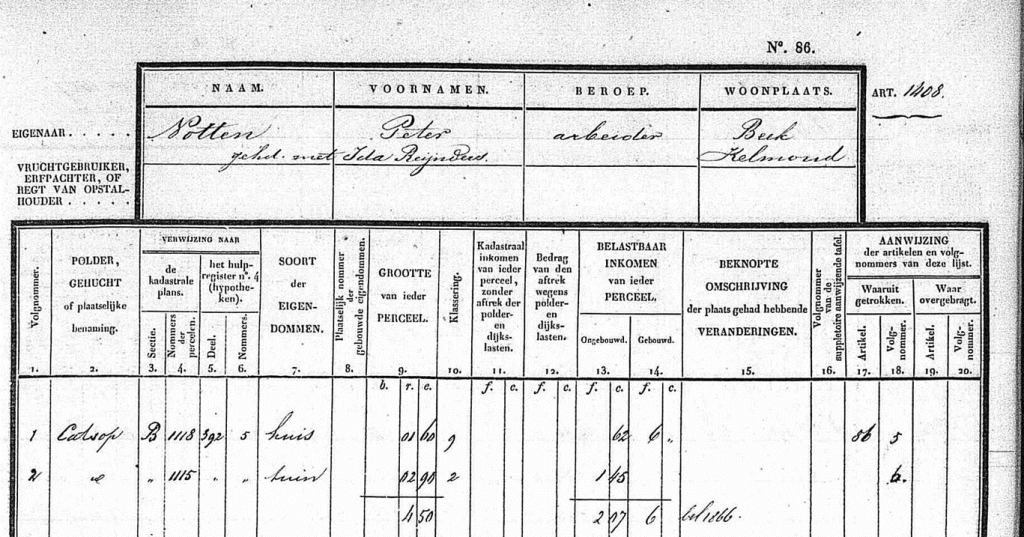 N°. 86.
NAAM. VOORNAMEN. BEROEP. WOONPLAATS. ART. 1408.
EIGENAAR . . . . . Notten Peter arbeider Beek
gehd. met Ida Reijnders. Helmond
VRUCHTGEBRUIKER,
ERFPACHTER, OF
REGT VAN OPSTAL-
HOUDER . . . . .
Volgnommer.
POLDER,
GEHUCHT
of plaatselijke
benaming.
VERWIJZING NAAR
de
kadastrale
plans.
Sectie.
Nommers
der
perceelen.
het hulp-
register n°. 4
(hypothe-
ken).
Deel.
Nommers.
SOORT
der
EIGEN-
DOMMEN.
Plaatselijk nommer
der
gebouwde eigendommen.
GROOTTE
van ieder
PERCEEL.
Klassering.
Kadastraal
inkomen
van ieder
perceel,
zonder
aftrek der
polder-
en
dijks-
lasten.
Bedrag
van den
aftrek
wegens
polder-
en
dijks-
lasten.
BELASTBAAR
INKOMEN
van ieder
PERCEEL.
Ongebouwd. Gebouwd.
BEKNOPTE
OMSCHRIJVING
der plaats gehad hebbende
VERANDERINGEN.
Volgnommer
van de
suppletoire aanwijzende tafel.
AANWIJZING
der artikelen en volg-
nommers van deze lijst.
Waaruit
getrokken.
Artikel.
Volg-
nommer.
Waar
overgebragt.
Artikel.
Volg-
nommer.
1. 2. 3. 4. 5. 6. 7. 8. 9. 10. 11. 12. 13. 14. 15. 16. 17. 18. 19. 20.
b. r. e. f. c. f. c. f. c. f. c.
1 Catsop B 1118 392 5 huis 01 60 9 62 6 „ 86 5
2 „ „ 1115 „ „ tuin 02 90 2 1 45 6.
4 50 2 07 6 bel 1866.